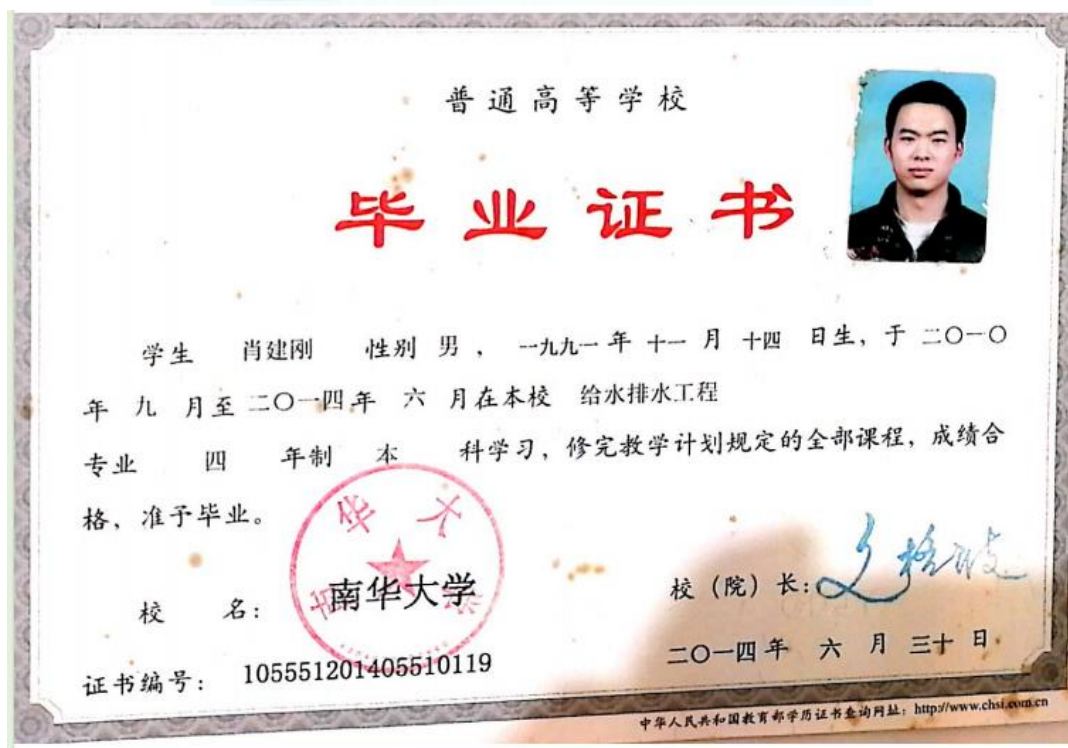 普通高等学校
毕业证书
学生 肖建刚 性别 男 ， 一九九一 年 十一 月 十四 日生，于 二〇一〇
年 九 月至 二〇一四年 六 月在本校 给水排水工程
专业 四 年制 本 科学习，修完教学计划规定的全部课程，成绩合
格，准予毕业。
南华大学
校 名： 南华大学
校（院）长：
二〇一四年 六 月 三十 日
证书编号： 105551201405510119
中华人民共和国教育部学历证书查询网址：http://www.chsi.com.cn